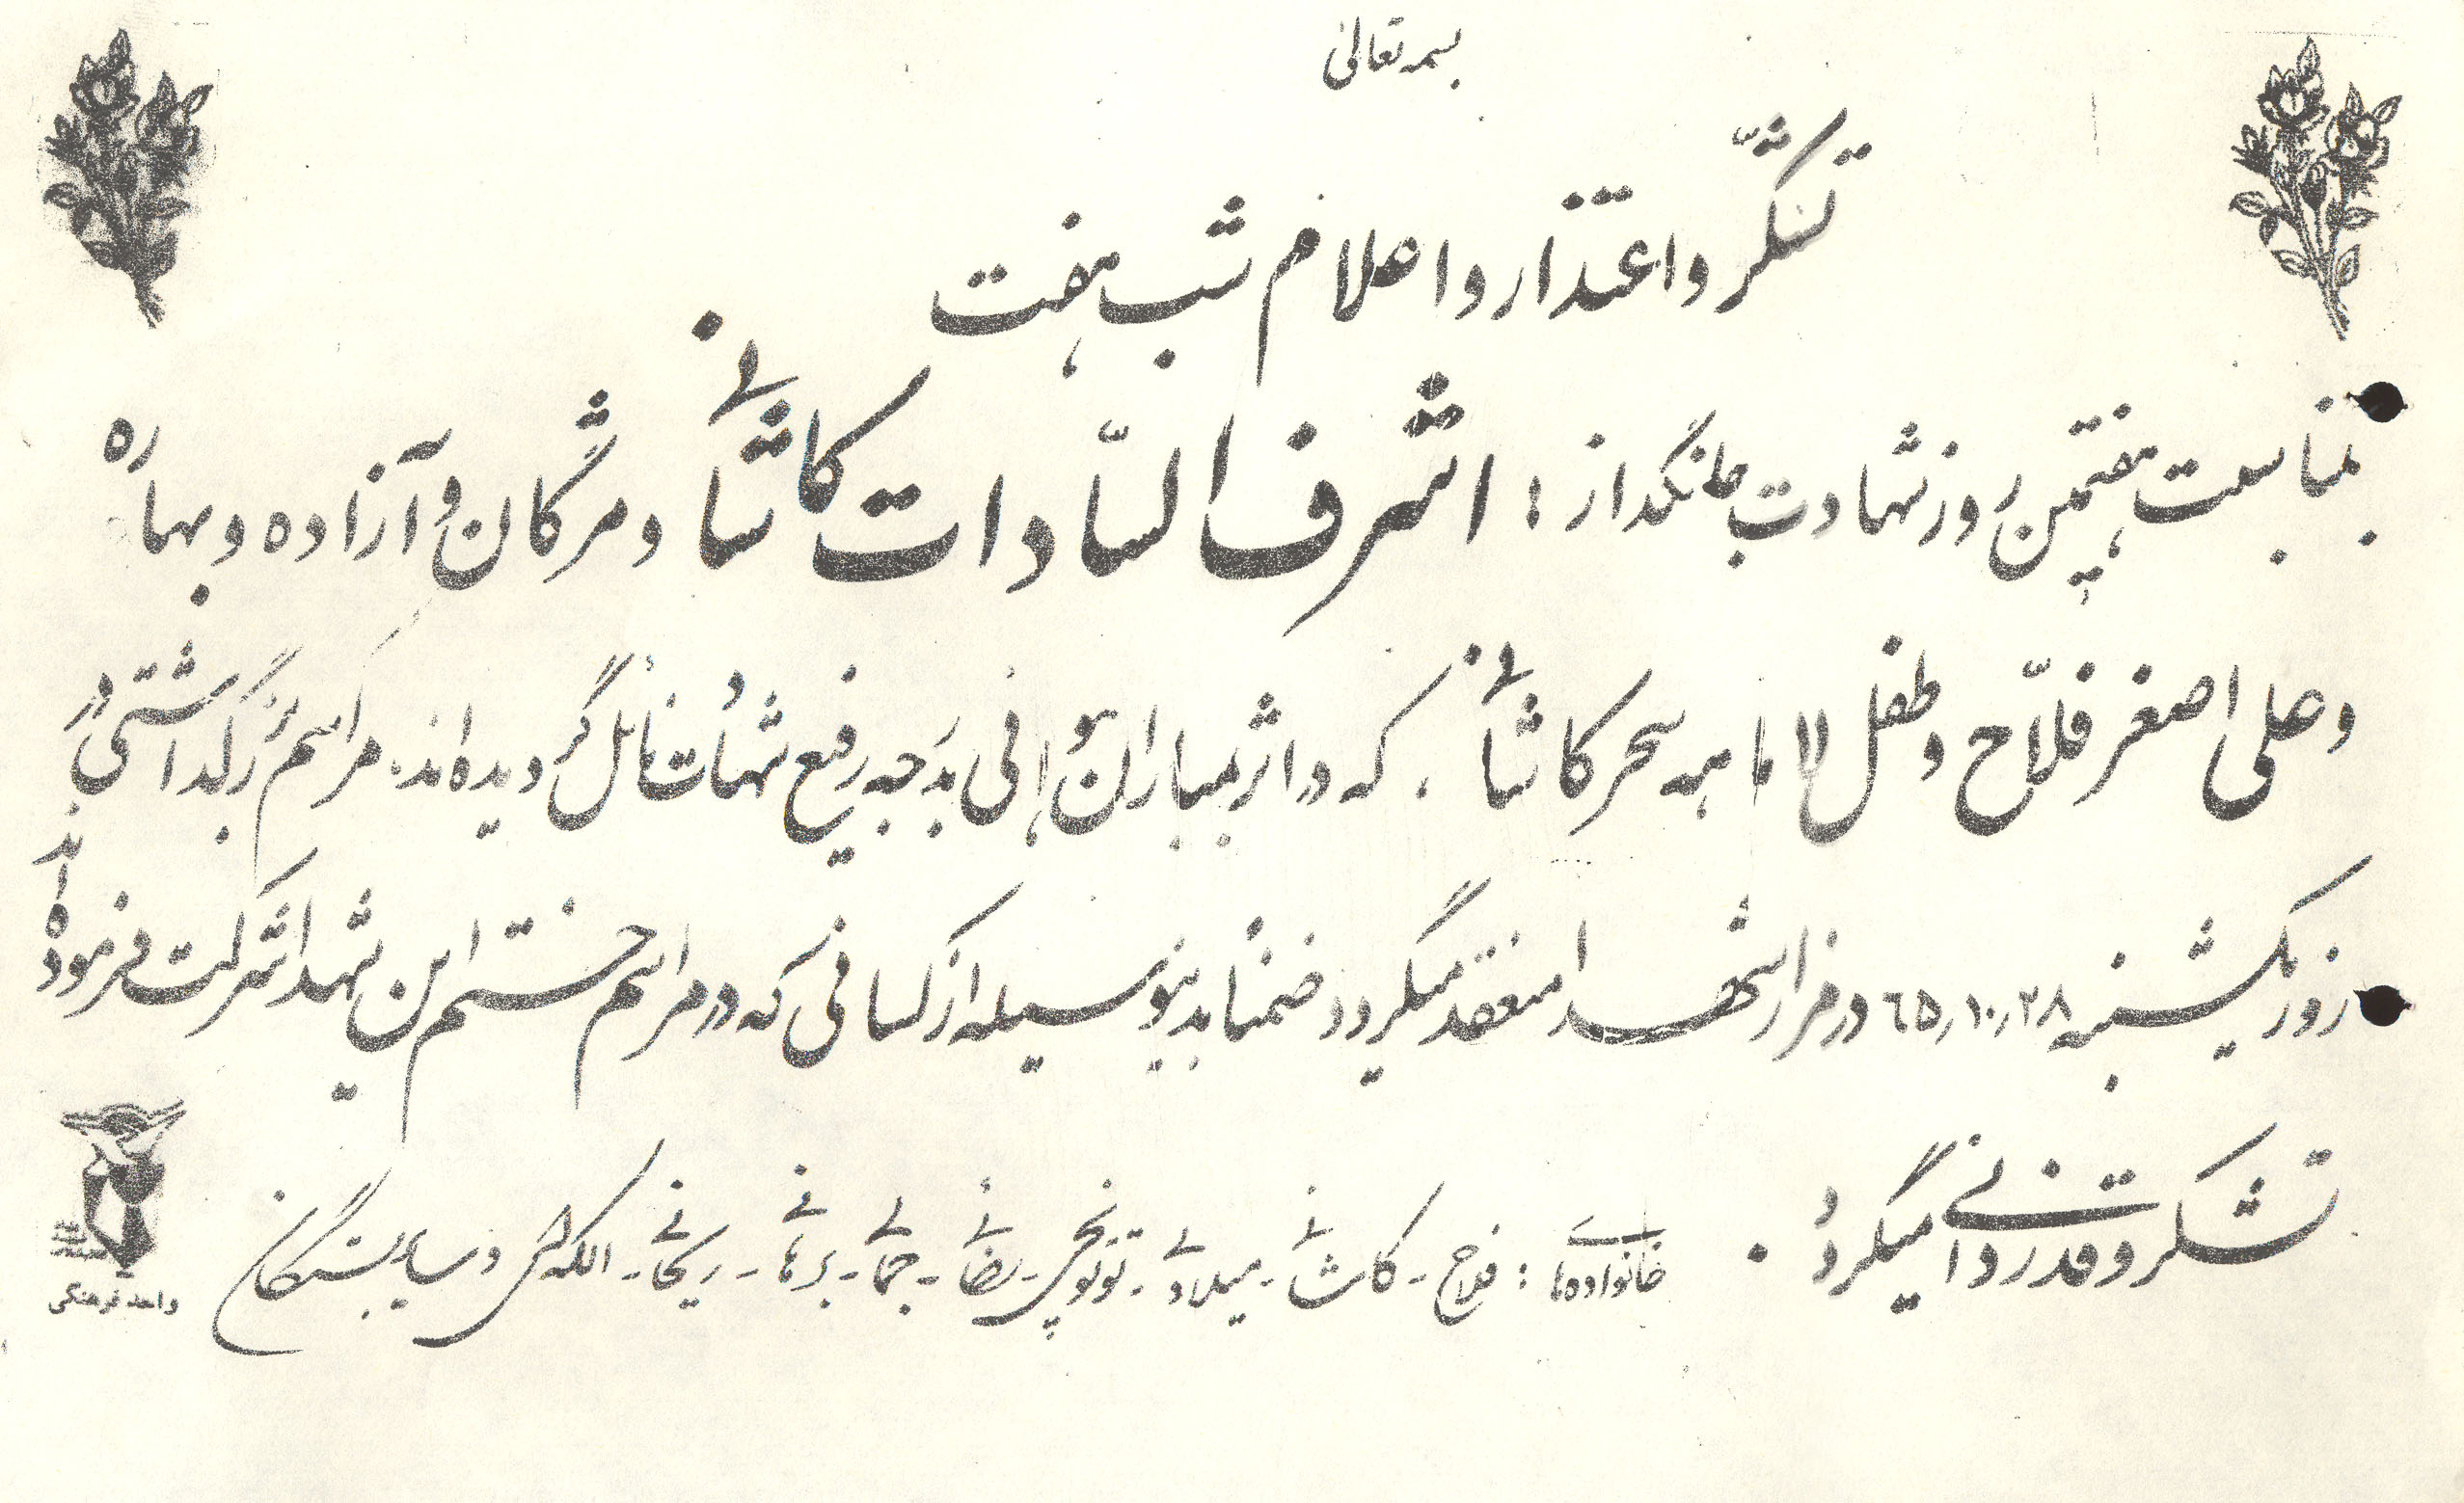 بسمه تعالی
تشکّر و اعتذار و اعلام شب هفت
بمناسبت هفتمین روز شهادت جانگداز : اشرف السّادات کاشانی و مژگان و آزاده و بهاره
و علی اصغر فلّاح و طفل ۱۱ ماهه سحر کاشانی ، که در اثر بمباران هوائی بدرجه رفیع شهادت نائل گردیده اند . مراسم بزرگداشتی در
روز یکشنبه ۶۵٫۱۰٫۲۸ در مزار شهدا منعقد میگردد ضمناً بدینوسیله از کسانی که در مراسم ختم این شهدا شرکت فرموده اند
تشکر و قدردانی میگردد .
خانواده های : فلاح - کاشانی - میلادی - توتونچی - - جمالی - برهانی - ریحانی - و سایر بستگان
واحد فرهنگی